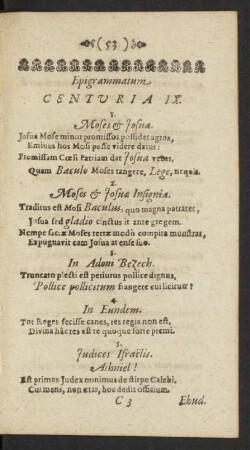 (53)
Epigrammatum
CENTURIA IX.
1.
Moses & Josua.
Josua Mose minor promissos possidet agros,
Eminus hos Mosi posse videre datur:
Promissam Cœli Patriam dat Josua
Quam Baculo Moses tangere, Lege, nequit.
2.
Moses & Josuæ Insignia.
Traditus est Mosi Baculus, quo magna patraret,
Josua sed gladio cinctus it ante gregem.
Nempe sacræ Moses terræ modò compita monstrat,
Expugnavit eam Josua at ense suo.
3.
In Adoni Bezech.
Truncato plecti est periurus pollice dignus,
Pollice pollicitum frangere cui licitum?
4.
In Eundem.
Tot Reges fecisse canes, res regia non est,
Divina hæc res est te quoque sorte premi.
5.
Judices Israëlis.
Athniel!
Est primus Judex minimus de stirpe Calebi,
Cui mens, non ætas, hoc dedit officium.
C 3 Ehud.